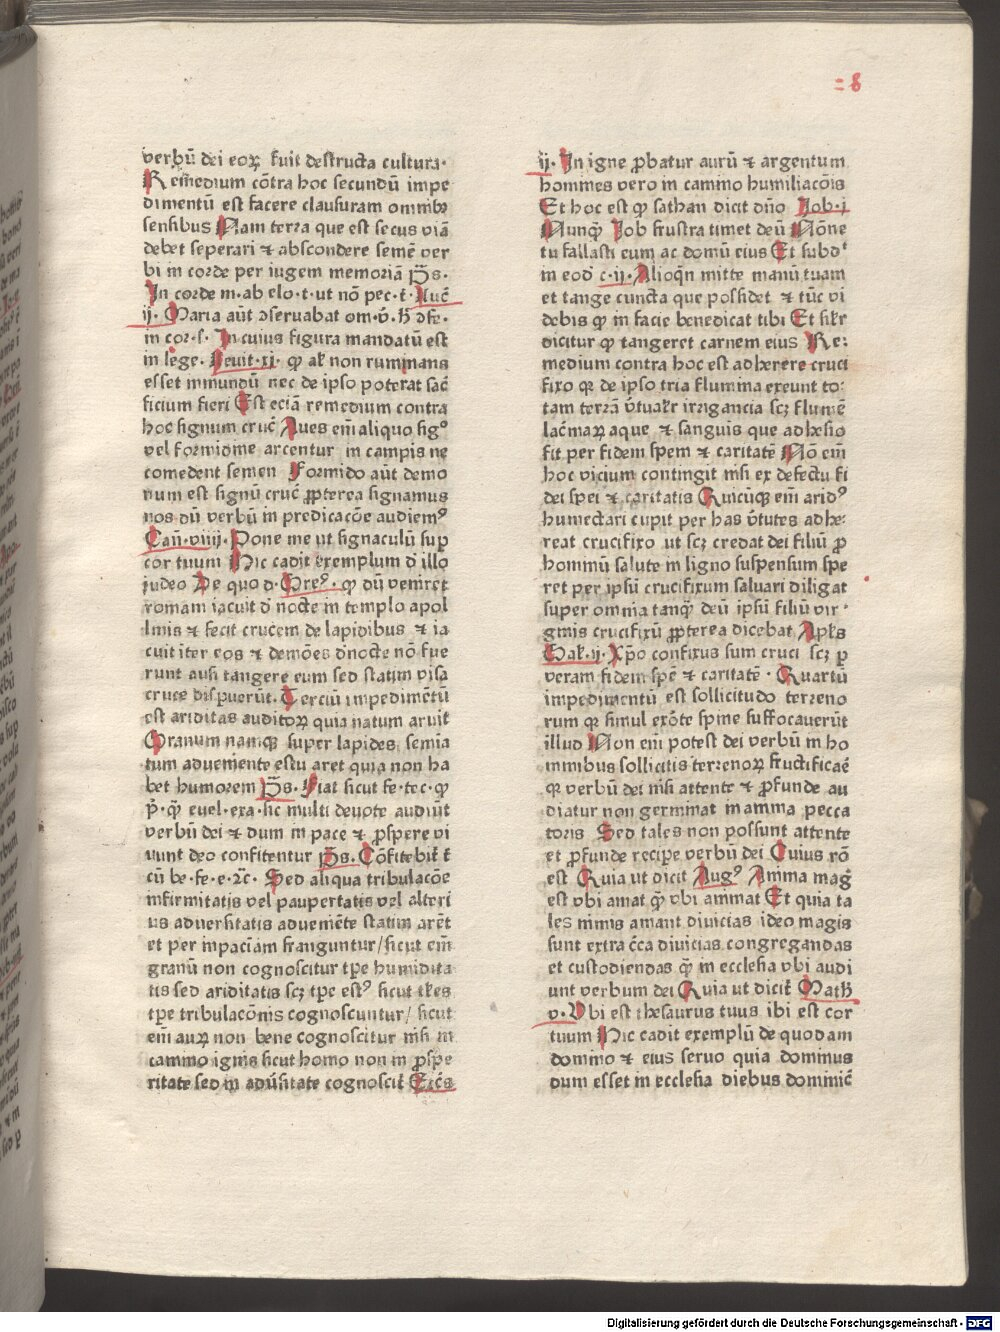 =8
verbū dei eoꝝ fuit destructa cultura·
Remedium cōtra hoc secundū impe
dimentū est facere clausuram omnibꝫ
sensibus Nam terra que est secus viā
debet seperari ⁊ abscondere semē ver
bi in corde per iugem memoriā p̄s·
In corde m·ab elo·t·ut nō pec·t̄ Luc̄
ij· Maria aūt ꝯseruabat om·v̄·ħ ꝯfe·
in cor·s· In cuius figura mandatū est
in lege· Leuit·xi· ꝙ aīal non ruminans
esset inmundū nec de ipso poterat sac̄
ficium fieri Est eciā remedium contra
hoc signum cruc̄ Aues em̄ aliquo sigº
vel formidine arcentur in campis ne
comedent semen Formido aūt demo
num est signū cruc̄ ꝓpterea signamus
nos dū verbū in predicacōe audiemꝰ
Cañ·viiij· Pone me ut signaculū sup̄
cor tuum Hic cadit exemplum d̄ illo
iudeo De quo d· Greꝰ· ꝙ dū veniret
romam iacuit d̄ nocte in templo apol
linis ⁊ fecit crucem de lapidibus ⁊ ia
cuit iter eos ⁊ demōes d̄nocte nō fue
runt ausi tangere eum sed statim visa
cruce dispuerūt· Terciū impedimētū
est ariditas auditoꝝ quia natum aruit
Granum namqꝫ super lapides semia
tum adueniente estu aret quia non ha
bet humorem p̄s· Fiat sicut fe·tec·ꝙ
p̄·ꝙ̄ euel·exa·sic multi deuote audiūt
verbū dei ⁊ dum in pace ⁊ ꝓspere vi
uunt deo confitentur p̄s· Cōfitebit̄ t̄
cū be·fe·e·⁊c̄· Sed aliqua tribulacōe
infirmitatis vel paupertatis vel alteri
us aduersitatis adueniēte statim arēt
et per inpaciam franguntur/sicut em̄
granū non cognoscitur tp̄e humidita
tis sed ariditatis scꝫ tp̄e estꝰ sicut tłes
tp̄e tribulacōnis cognoscuntur/ sicut
em̄ auꝝ non bene cognoscitur nisi in
cammo ignis sicut homo non in ꝓspe
ritate sed in adūsitate cognoscit̄ Ecc̄s
ij· In igne ꝓbatur aurū ⁊ argentum
homines vero in camino humiliacōis
Et hoc est ꝙ sathan dicit dn̄o Job·i
Nunqͣ̄ Job frustra timet deū Nōne
tu fallasti eum ac domū eius Et subdͭ
in eod̄ c·ij· Alioqͥn mitte manū tuam
et tange cuncta que possidet ⁊ tūc vi
debis ꝙ in facie benedicat tibi Et siłr
dicitur ꝙ tangeret carnem eius Re:
medium contra hoc est adherere cruci
fixo qꝛ de ipso tria flumina exeunt to:
tam terrā v̄tuałr irrigancia scꝫ flumē
lac̄maꝝ aque ⁊ sanguis que adhesio
fit per fidem spem ⁊ caritatē No em̄
hoc vicium contingit nisi ex defectu fi
dei spei ⁊ caritatis Quicūqꝫ em̄ aridꝰ
humectari cupit per has v̄tutes adhe:
reat crucifixo ut scꝫ credat dei filiū ꝓ
hominū salute in ligno suspensum spe
ret per ipsū crucifixum saluari diligat
super omnia tanqͣ̄ deū ipsū filiū vir·
ginis crucifixū ꝓpterea dicebat Apłs
Gał·ij· Xp̄o confixus sum cruci scꝫ ꝑ
veram fidem spē ⁊ caritatē· Quartū
impedimentū est sollicitudo terreno
rum qꝛ simul exōte spine suffocauerūt
illud Non em̄ potest dei verbū in ho
minibus sollicitis terrenoꝝ fructificāe
qꝛ verbū dei nisi attente ⁊ ꝓfunde au
diatur non germinat in anima pecca
toris Sed tales non possunt attente
et ꝓfunde recipe verbū dei Cuius rō
est Quia ut dicit Augꝰ Anima maḡ
est vbi amat qͣ̄ vbi animat Et quia ta
les nimis amant diuicias ideo magis
sunt extra c̄ca diuicias congregandas
et custodiendas qͣ̄ in ecclesia vbi audi
unt verbum dei Quia ut dicit̄ Math
v· Vbi est thesaurus tuus ibi est cor
tuum Hic cadit exemplū de quodam
domino ⁊ eius seruo quia dominus
dum esset in ecclesia diebus dominic̄
Digitalisierung gefördert durch die Deutsche Forschungsgemeinschaft - DFG